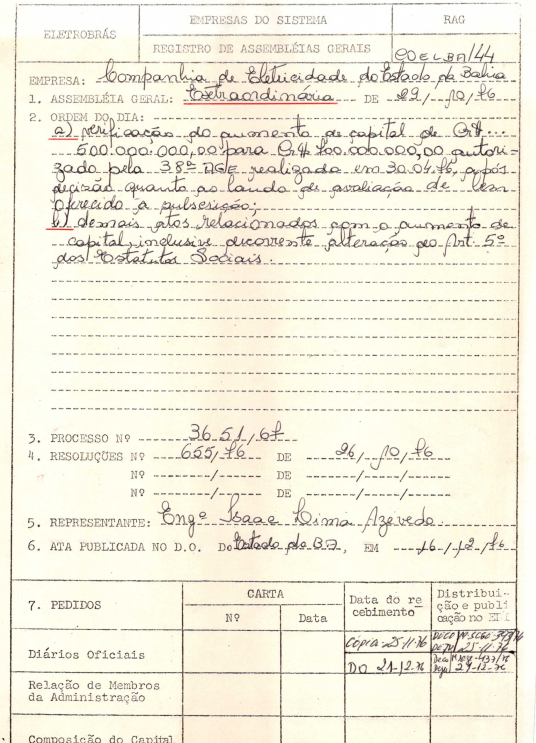 ELETROBRÁS
EMPRESAS DO SISTEMA
RAG
REGISTRO DE ASSEMBLÉIAS GERAIS
COELBA/44
EMPRESA: Companhia de Eletricidade do Estado da Bahia
1. ASSEMBLÉIA GERAL: Extraordinária DE 29/10/76
2. ORDEM DO DIA:
a) verificação do aumento de capital de Cr$...
500.000.000,00 para Cr$ 700.000.000,00 autori-
zado pela 38ª AGE realizada em 30.04.76, após
decisão quanto ao laudo de avaliação de bem
oferecido à subscrição;
b) demais atos relacionados com o aumento de
capital, inclusive decorrente alteração do Art. 5º
dos Estatutos Sociais.
3. PROCESSO Nº 3651/67
4. RESOLUÇÕES Nº 655/76 DE 26/10/76
Nº -----/----- DE ----/----/----
Nº -----/----- DE ----/----/----
5. REPRESENTANTE: Engº Isaac Lima Azevedo.
6. ATA PUBLICADA NO D.O. Do Estado da BA, EM 16/12/76
7. PEDIDOS
CARTA
Nº
Data
Data do re
cebimento
Distribui-
ção e publi
cação no
Diários Oficiais
Cópia 25-11-76
25-11-76
DO 21-12-76
Relação de Membros
da Administração
Composição do Capital